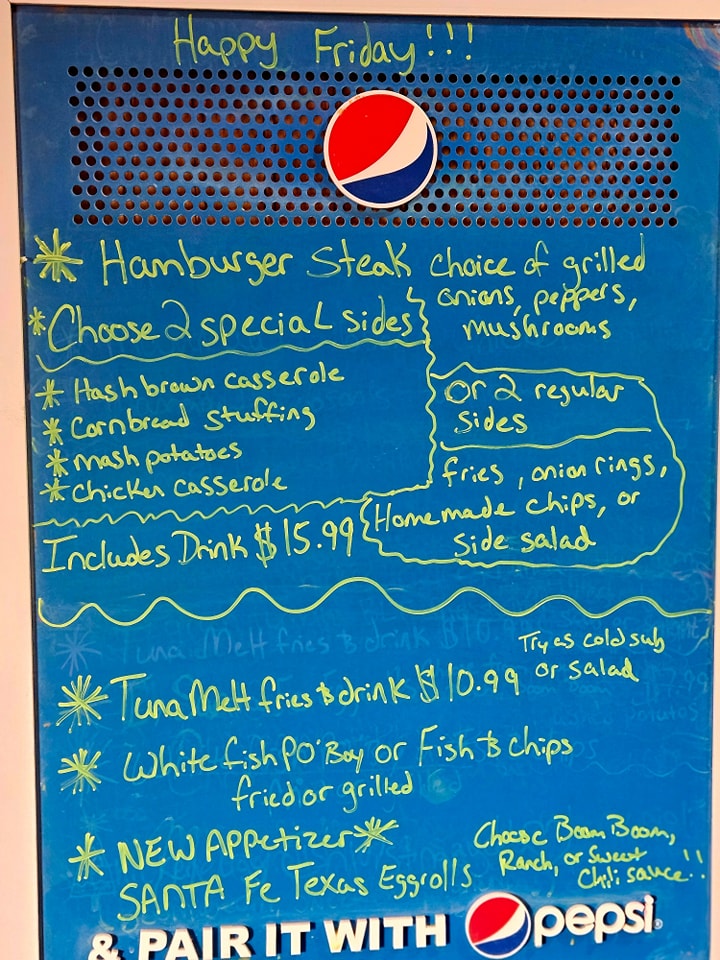 Happy Friday!!!
* Hamburger Steak choice of grilled
onions, peppers,
mushrooms
* Choose 2 special sides
* Hashbrown casserole
* Cornbread stuffing
* mash potatoes
* chicken casserole
or 2 regular
sides
fries, onion rings,
Homemade chips, or
side salad
Includes Drink $15.99
Tuna Melt fries & drink $10.
Try as cold sub
or salad
* Tuna Melt fries & drink $10.99
* White fish Po'Boy or Fish & chips
fried or grilled
* NEW Appetizer *
SANTA Fe Texas Eggrolls
Choose Boom Boom,
Ranch, or Sweet
Chili sauce!!
& PAIR IT WITH pepsi